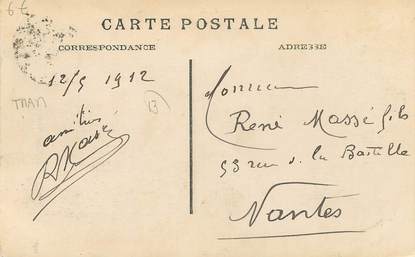 6€
CARTE POSTALE
CORRESPONDANCE
ADRESSE
12/5 1912
TRAM
13
amitiés
Monsieur
René Massé fils
53 rue d. la Bastille
Nantes